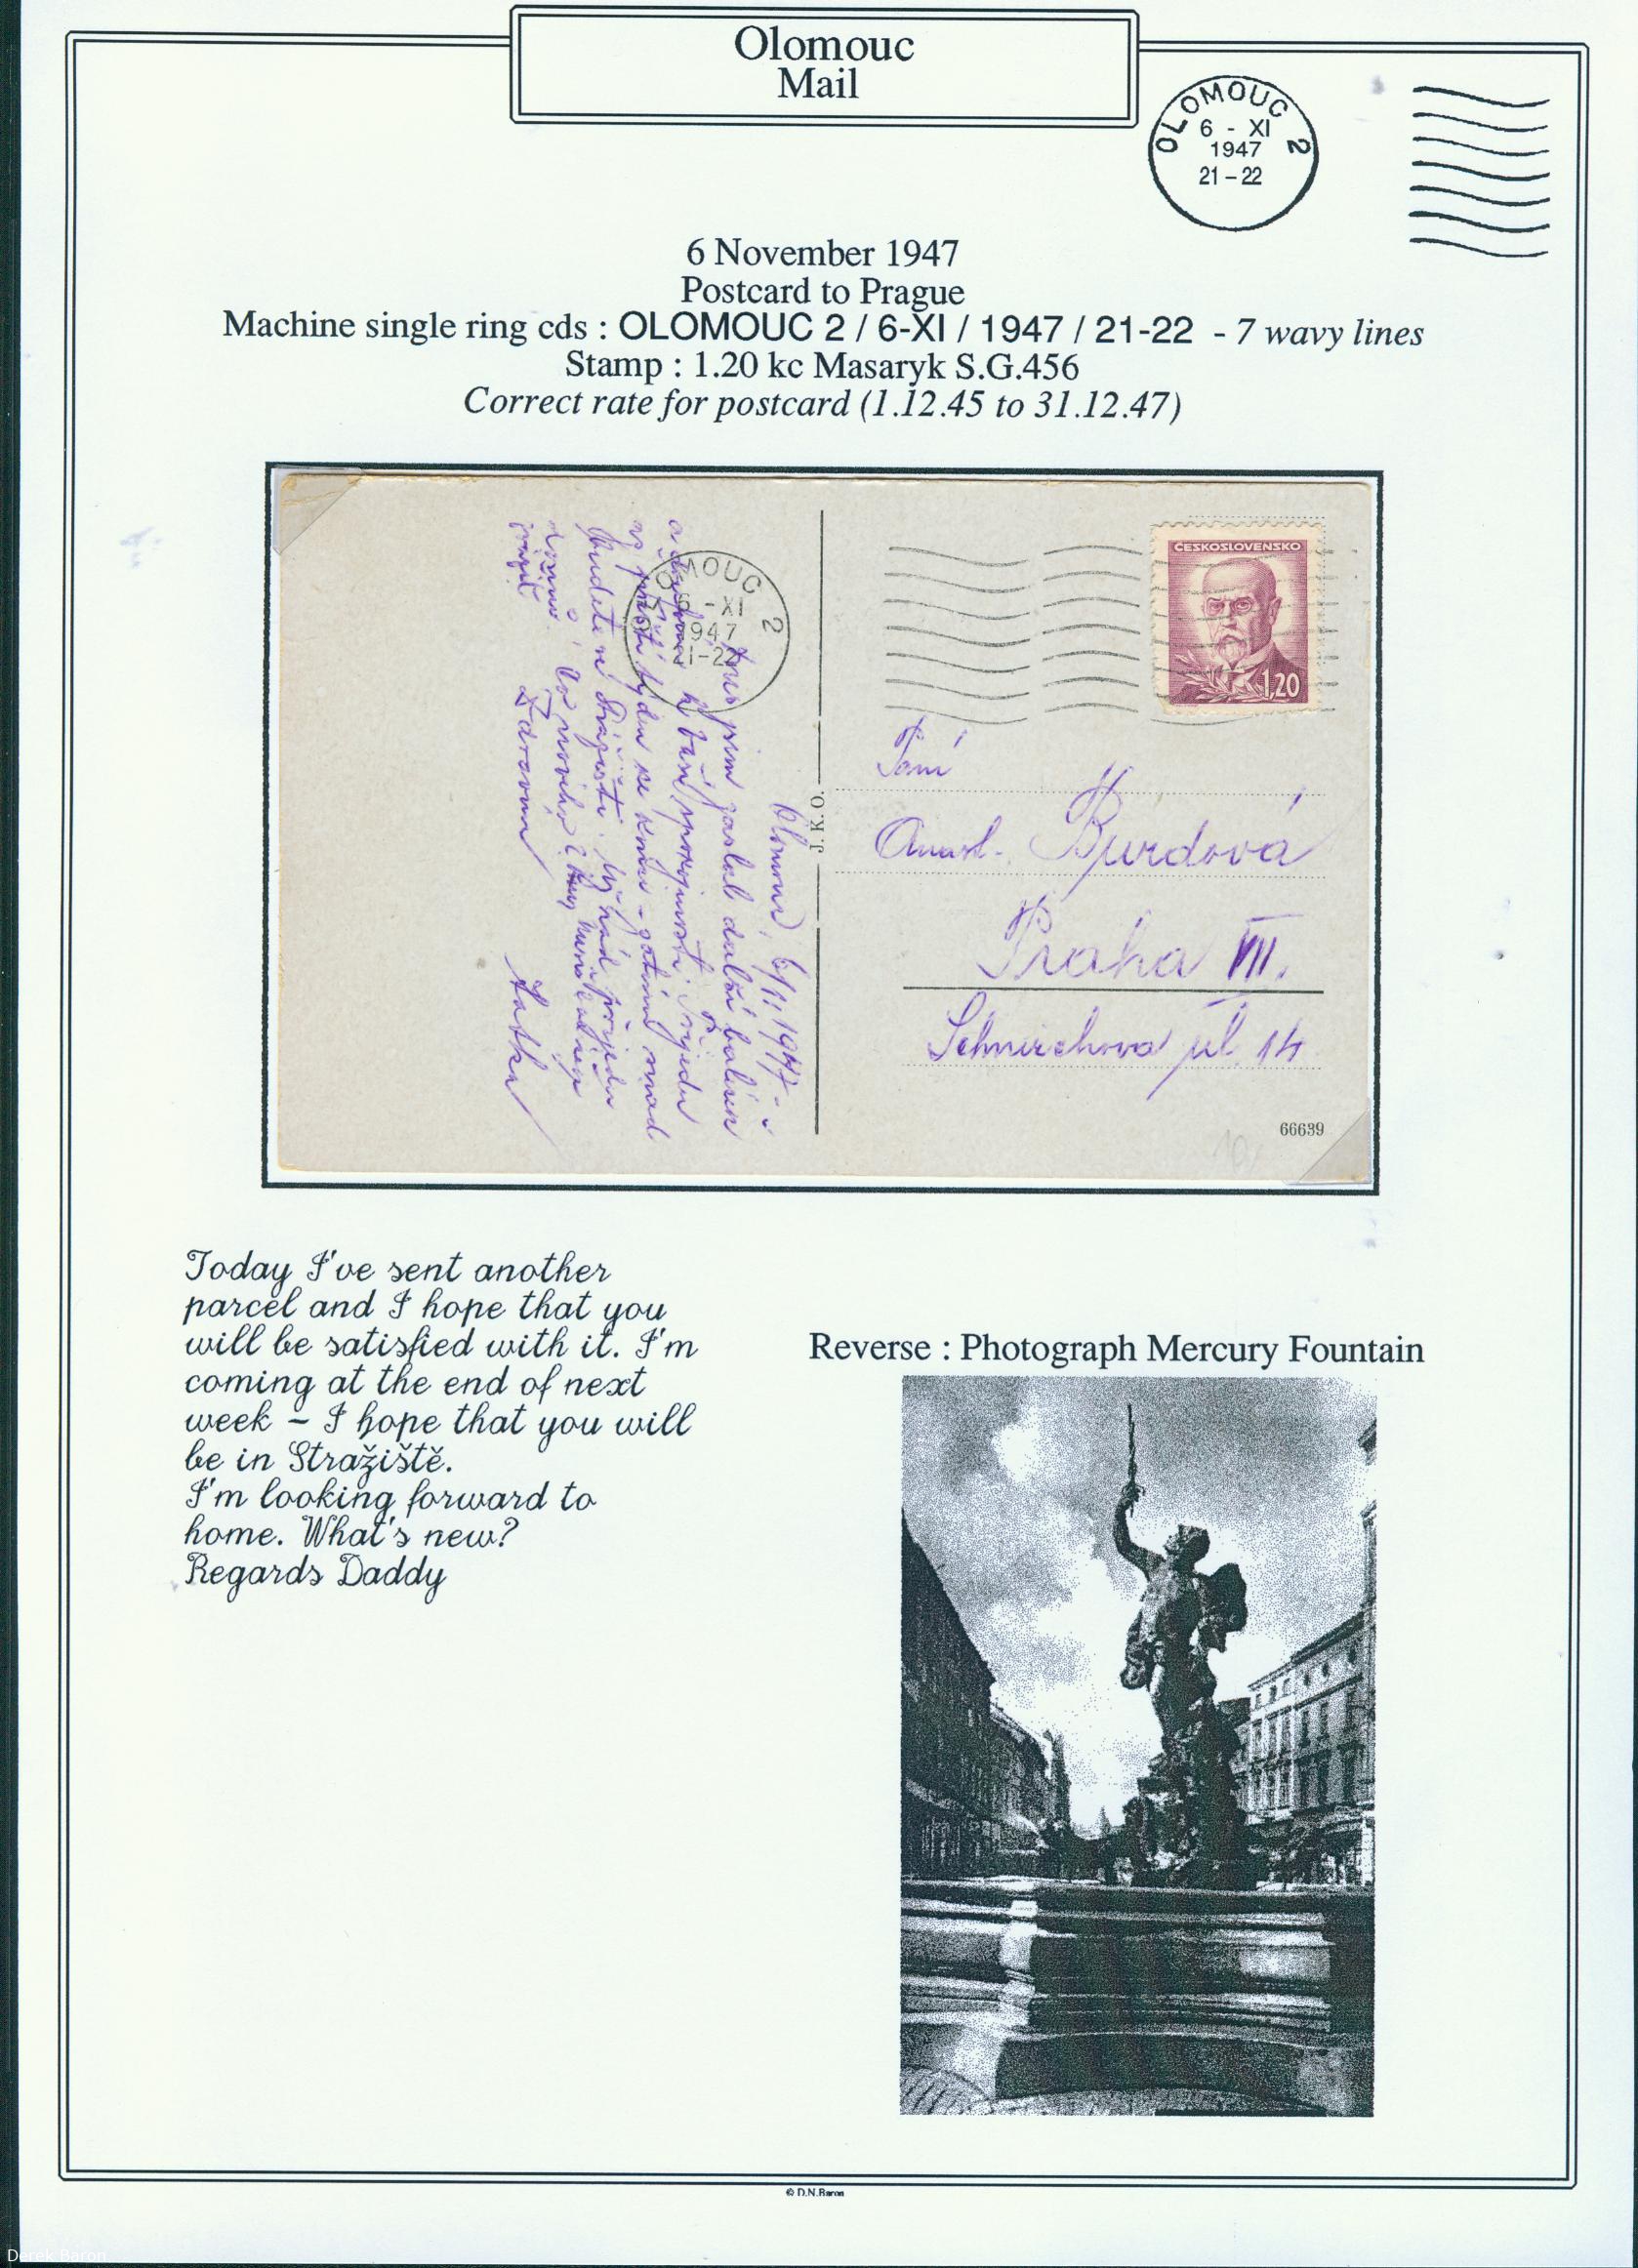 Olomouc
Mail
OLOMOUC 2
6 - XI
1947
21 - 22
6 November 1947
Postcard to Prague
Machine single ring cds : OLOMOUC 2 / 6-XI / 1947 / 21-22 - 7 wavy lines
Stamp : 1.20 kc Masaryk S.G.456
Correct rate for postcard (1.12.45 to 31.12.47)
ČESKOSLOVENSKO
1,20
OMOUC 2
6 -XI
1947
21-22
Olomouc, 6/11 1947
jsem zaslal další balíček
k Vaší spokojenosti. Přijedu
Budete
Co nového
Zdraví
Taťka
J. K. O.
Paní
Burdová
Praha VII.
Schnirchova ul 14
66639
Today I've sent another
parcel and I hope that you
will be satisfied with it. I'm
coming at the end of next
week – I hope that you will
be in Stražiště.
I'm looking forward to
home. What's new?
Regards Daddy
Reverse : Photograph Mercury Fountain
© D.N.Baron
Derek Baron